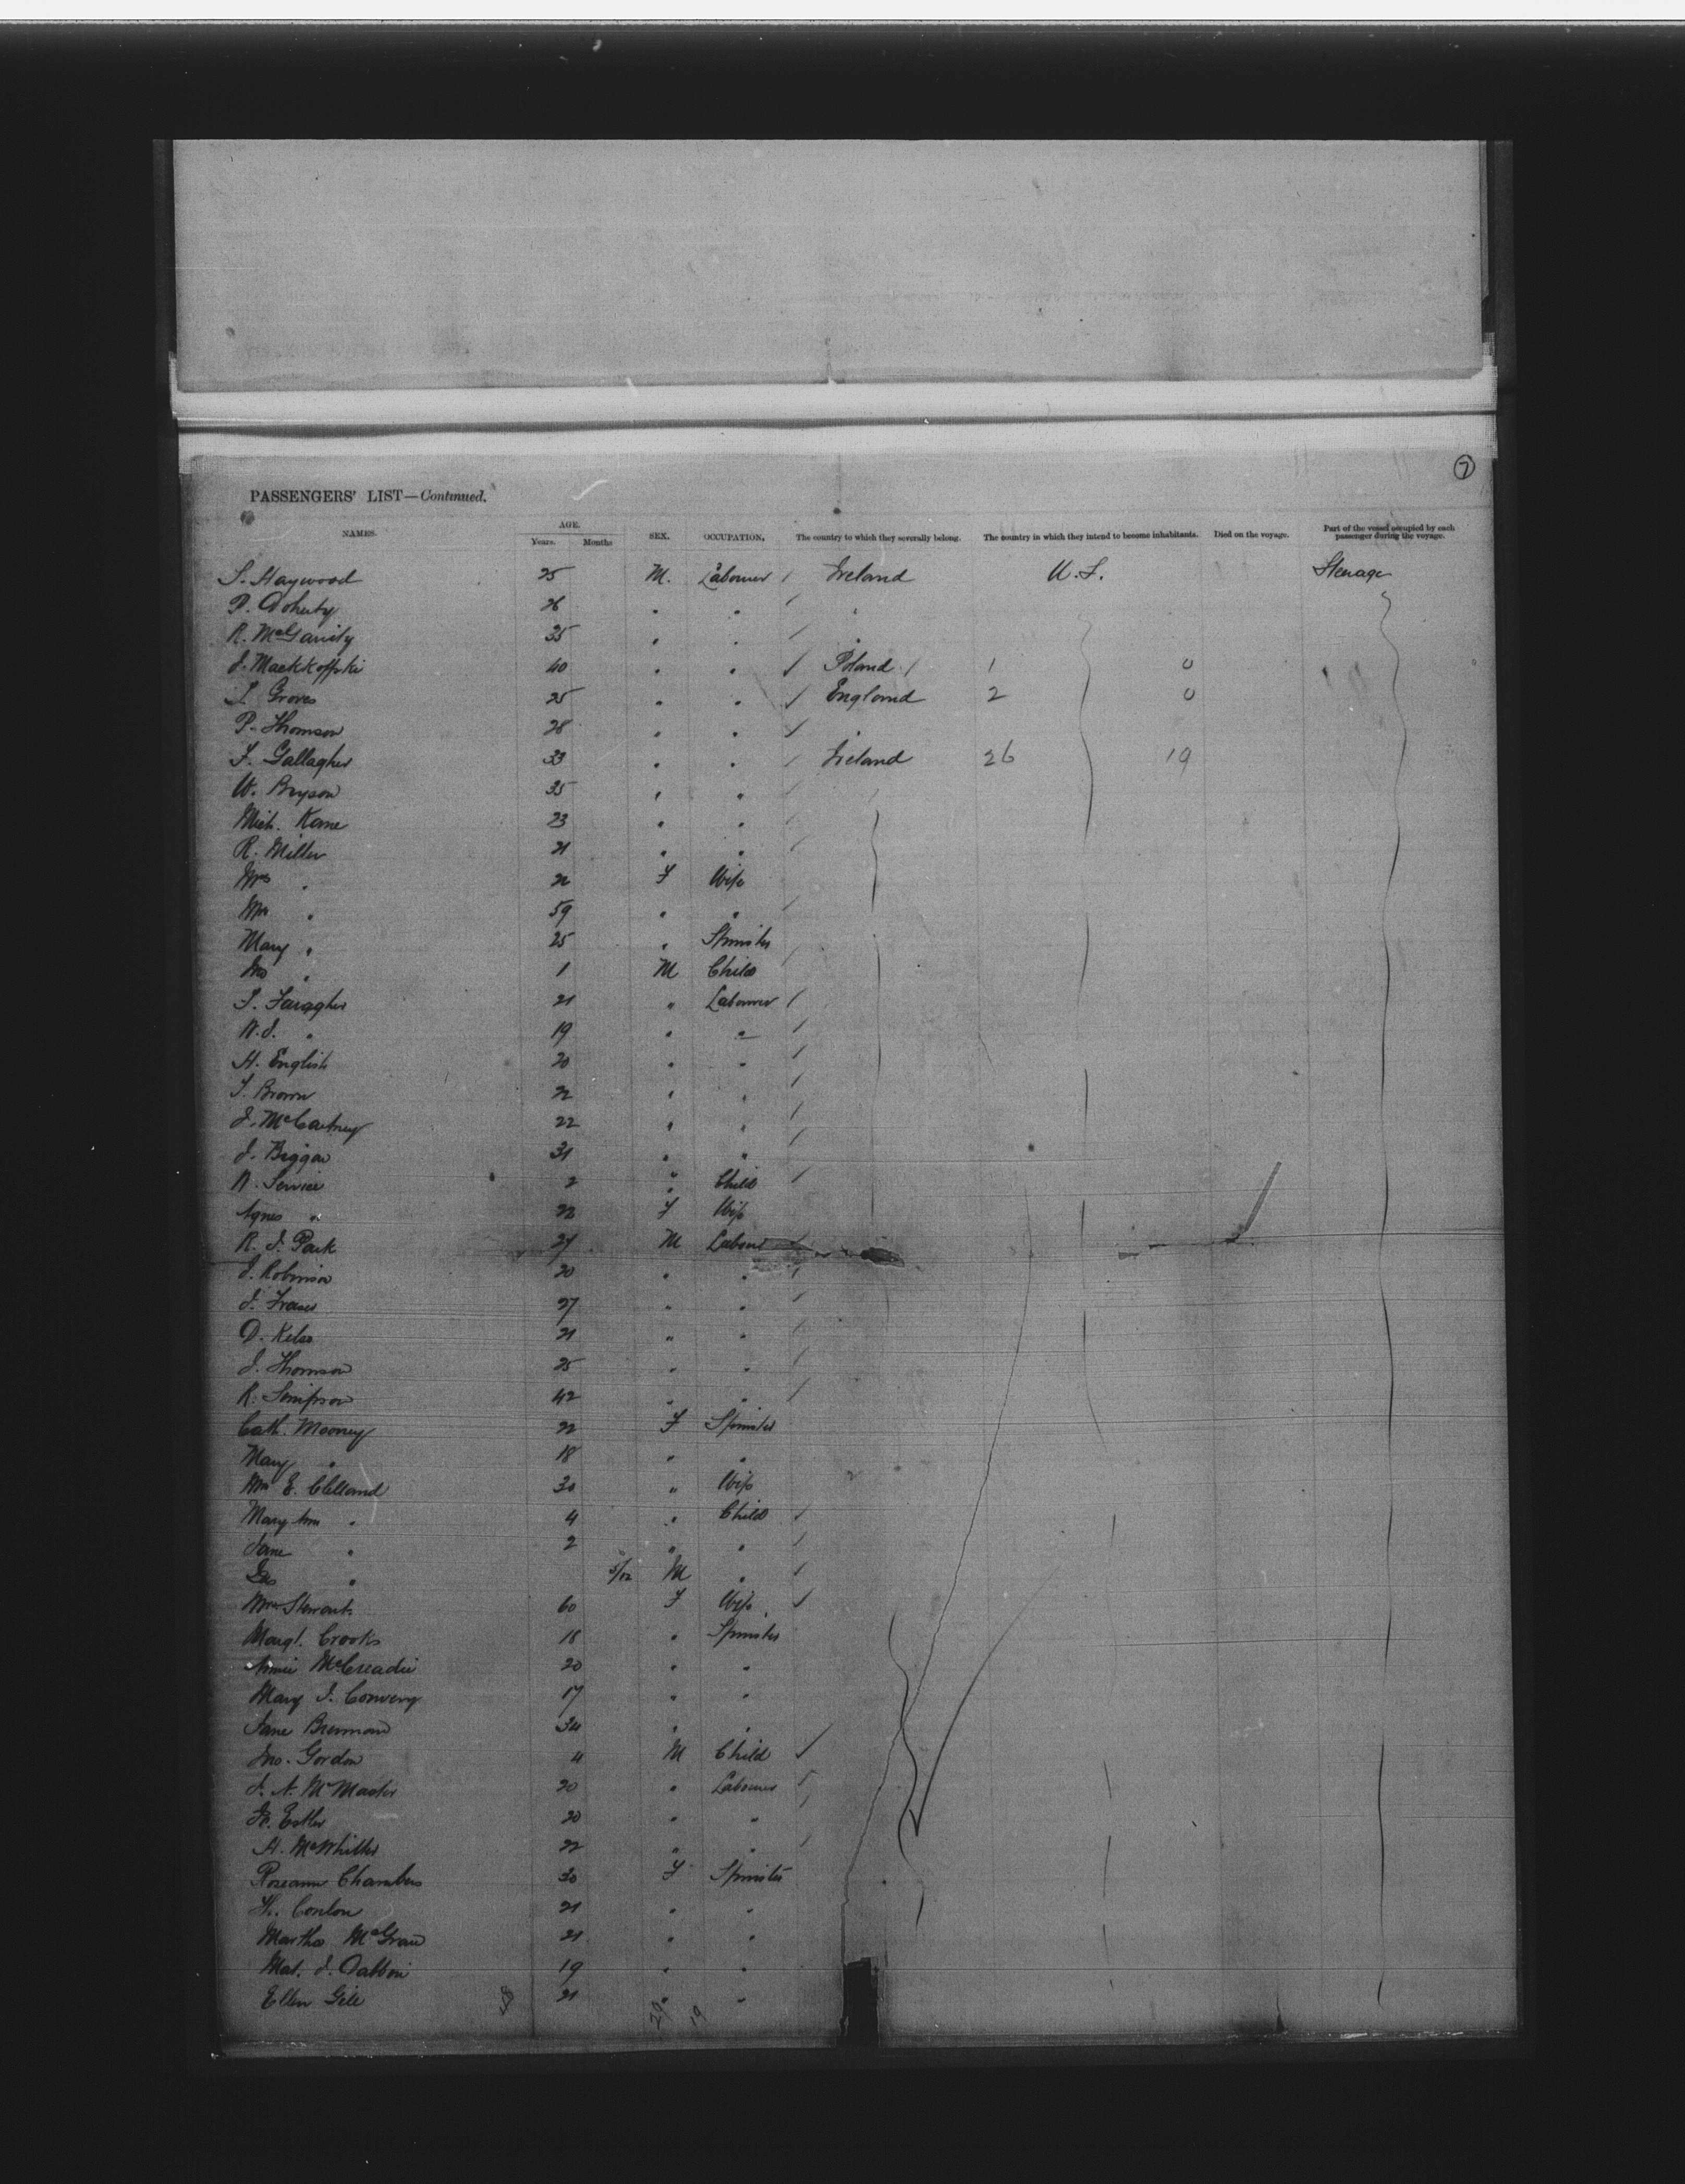 7
PASSENGERS' LIST—Continued.
NAMES. AGE. Years. Months SEX. OCCUPATION. The country to which they severally belong. The country in which they intend to become inhabitants. Died on the voyage. Part of the vessel occupied by each passenger during the voyage.
S. Haywood 25 M. Labourer Ireland U.S. Steerage
P. Doherty 26 " "  "
R. McGarrity 35 " " "
J. 40 " " Poland 1 0
Groves 25 " " England 2 0
P. Thomson 28 " " "
F. Gallagher 33 " " Ireland 26 19
W. Bryson 35 " "
Mich. Kane 23 " "
R. Miller 21 " "
Mrs " 22 F Wife
Mrs " 59 " "
Mary " 25 " Spinster
Jno " 1 M Child
Faragher 21 " Labourer
W.J. " 19 " "
H. English 20 " "
T. Brown 22 " "
J. McCartney 22 " "
J. Biggar 31 " "
Service 2 " Child
Agnes " 22 F Wife
R. J. Park 27 M Labour
J. Robinson 20 " "
J. Fraser 27 " "
D. Kelso 21 " "
J. Thomson 25 " "
R. Simpson 42 " "
Cath. Mooney 22 F Spinster
Mary " 18 " "
Mrs E. Clelland 30 " Wife
Mary Ann " 4 " Child
Jane " 2 " "
" 5/12 M "
Mrs Stewart 60 F Wife
Margt. Crooks 18 " Spinster
Annie McCreadie 20 " "
Mary J. Convery 17 " "
Jane Brennan 34 " "
Jno. Gordon 4 M Child
J. N. McMaster 20 " Labourer
20 " "
H. McWhitter 22 " "
Roseann Chambers 30 F Spinster
Conlon 21 " "
Martha McGraw 21 " "
19 " "
Ellen Gill 21 " "
48 29 19